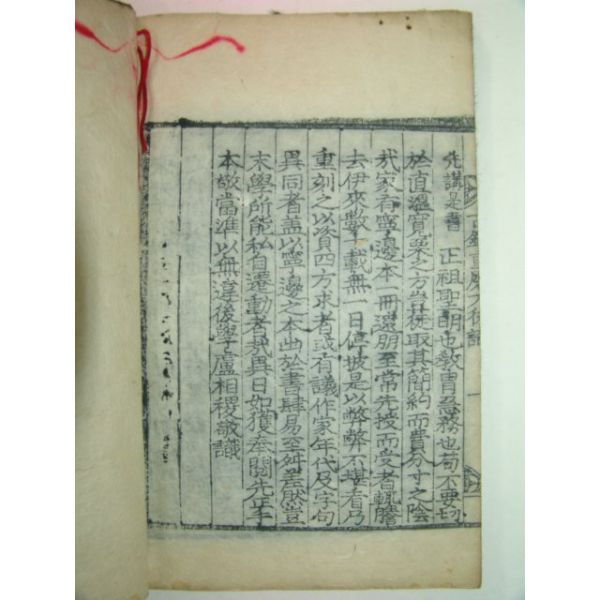 先講是書 正祖聖朙也敎胄急務也苟不要切
於直溫寬栗之方豈從取其簡約而費分寸之陰
哉家有寧邊本一冊遠朋至常先授而受者輒謄
去伊來數載無一日停披是以弊弊不堪看乃
重刻之以資四方求者或有議作家年代及字句
異同者盖以寧邊之本曲於書肆易至舛差然豈
末學所能私自遷動者哉異日如獲參閱先正手
本敬當準以無諄後學盧相稷敬識